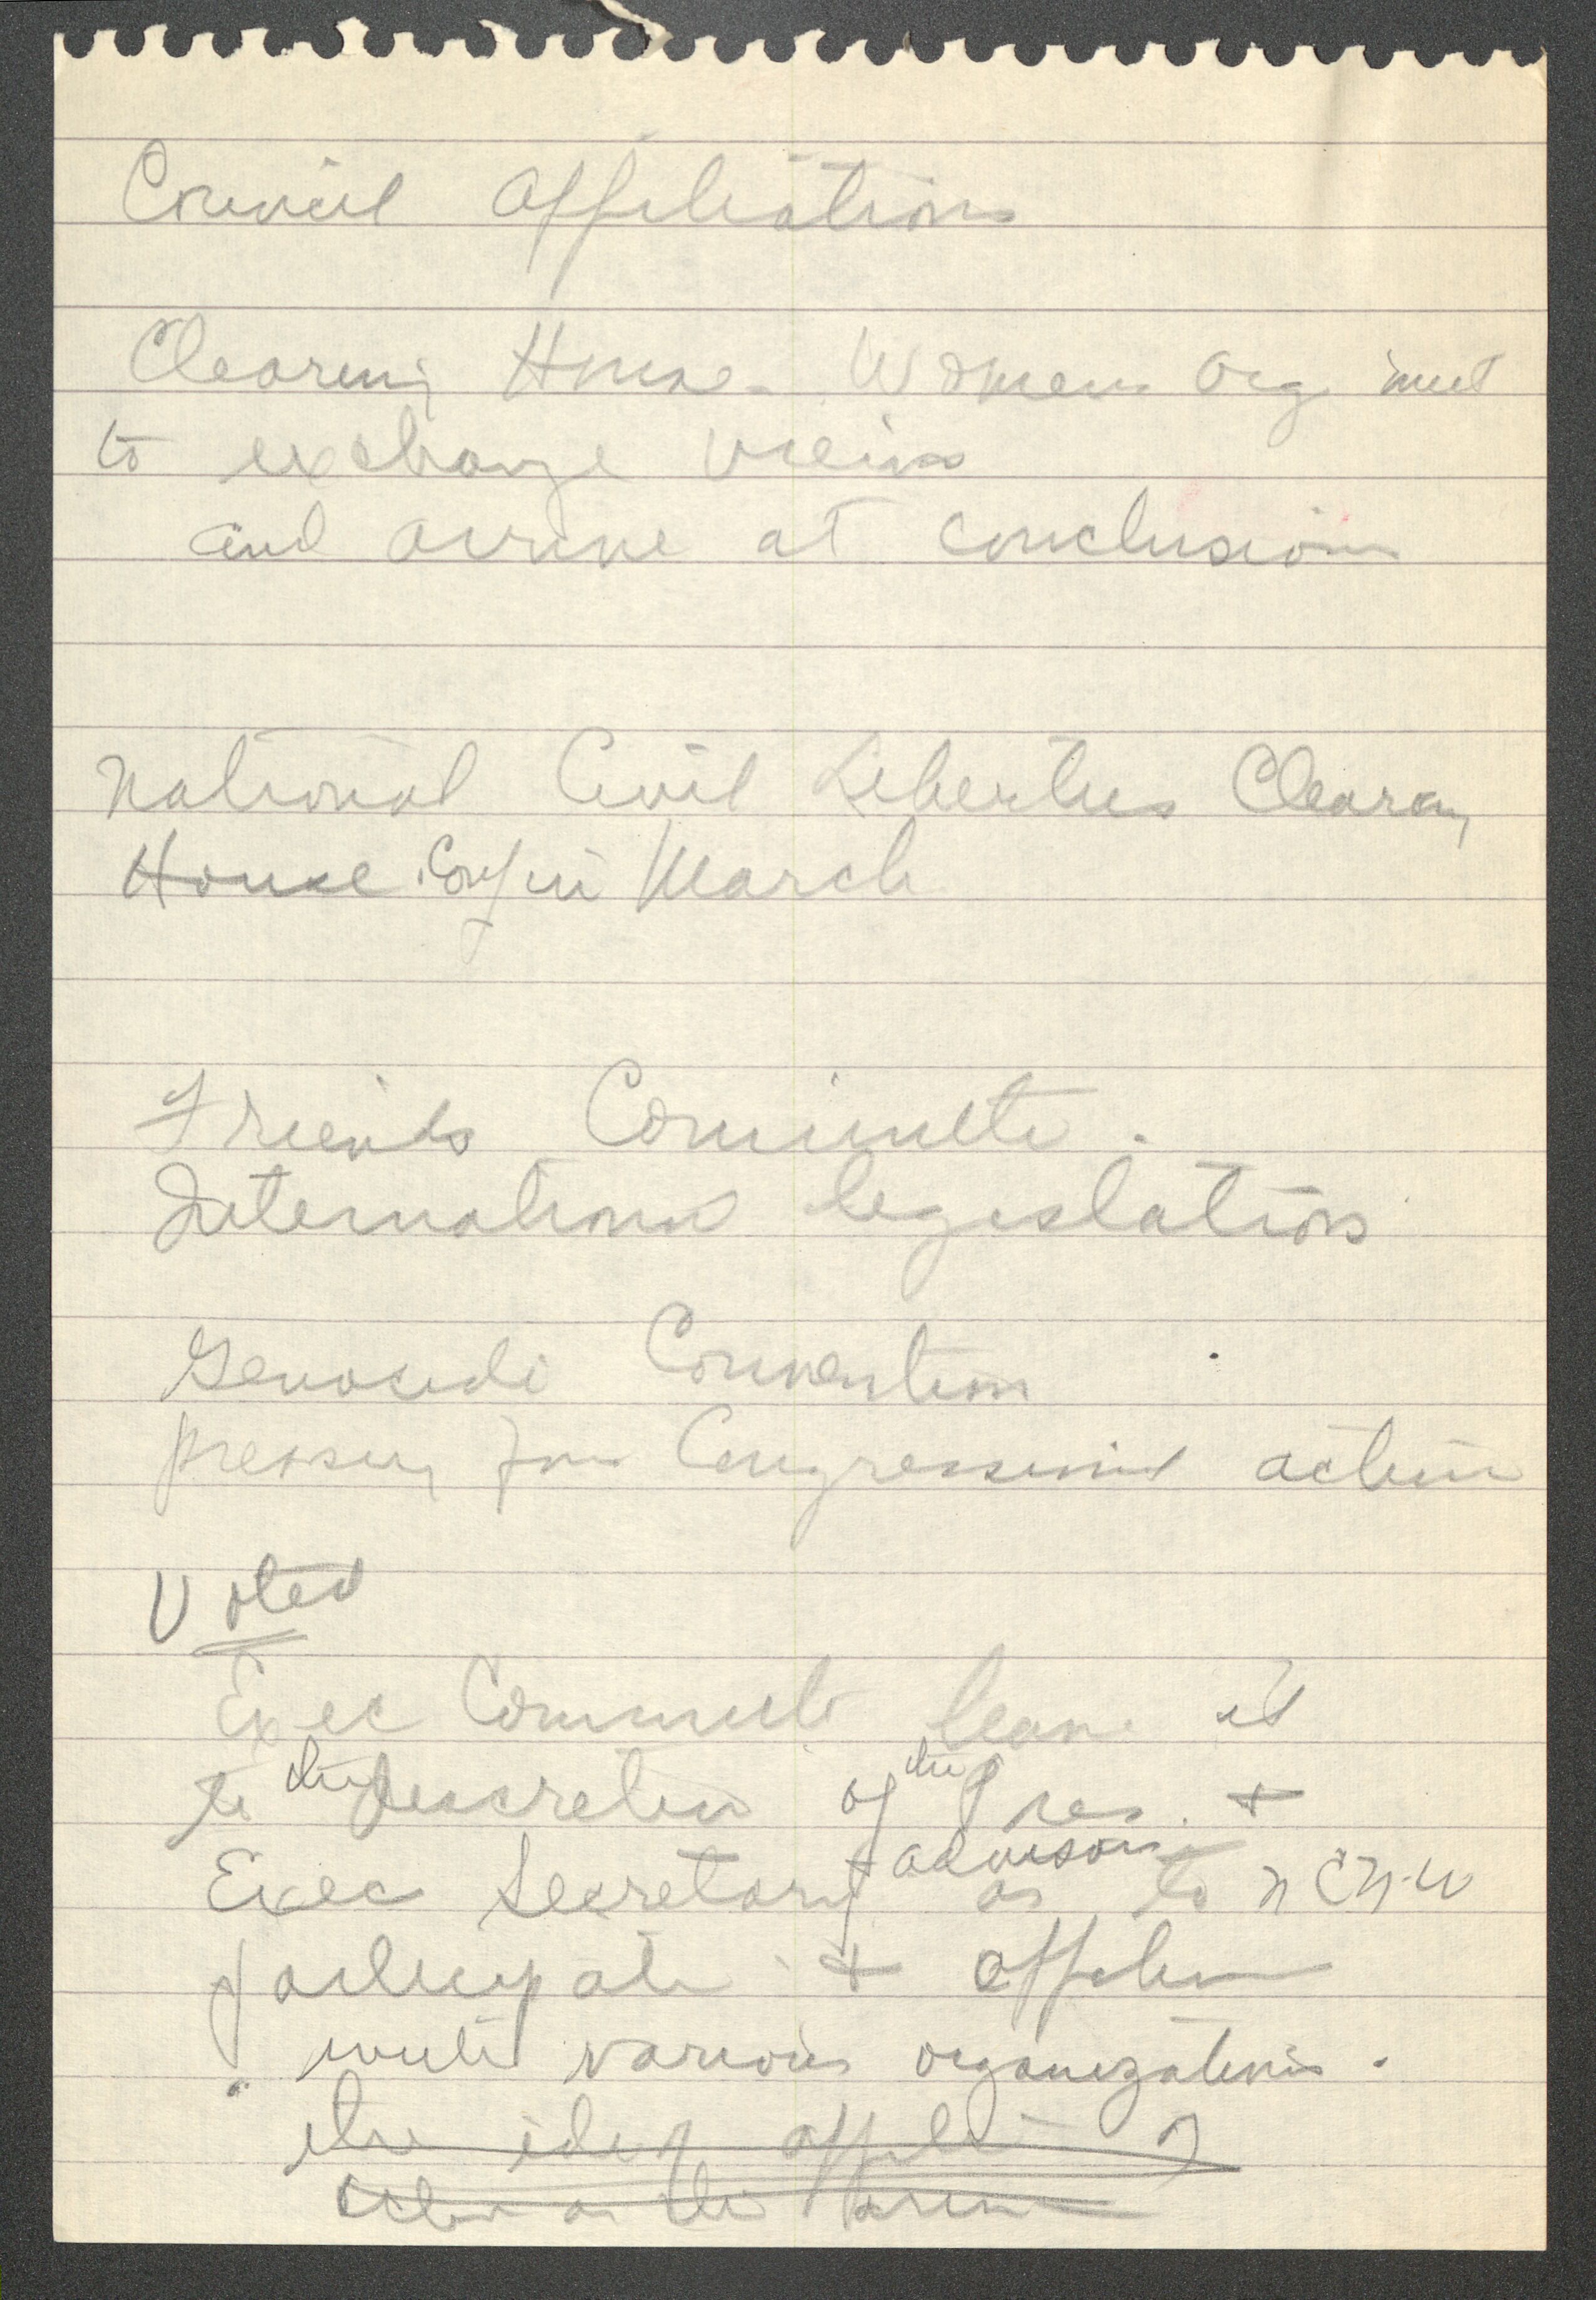 Council Affiliations
Clearing House - Womens Org meet
to exchange views
and arrive at conclusions
National Civil Liberties Clearing
House. Conf in March
Friends Committee.
International legislation
Genocide Convention
pressing for Congressional action
Voted
Exec Committee leave it
to the discretion of the Pres. +
Exec Secretary as to NCNW
participate + affiliation
with various organizations.
the idea of affili
on the